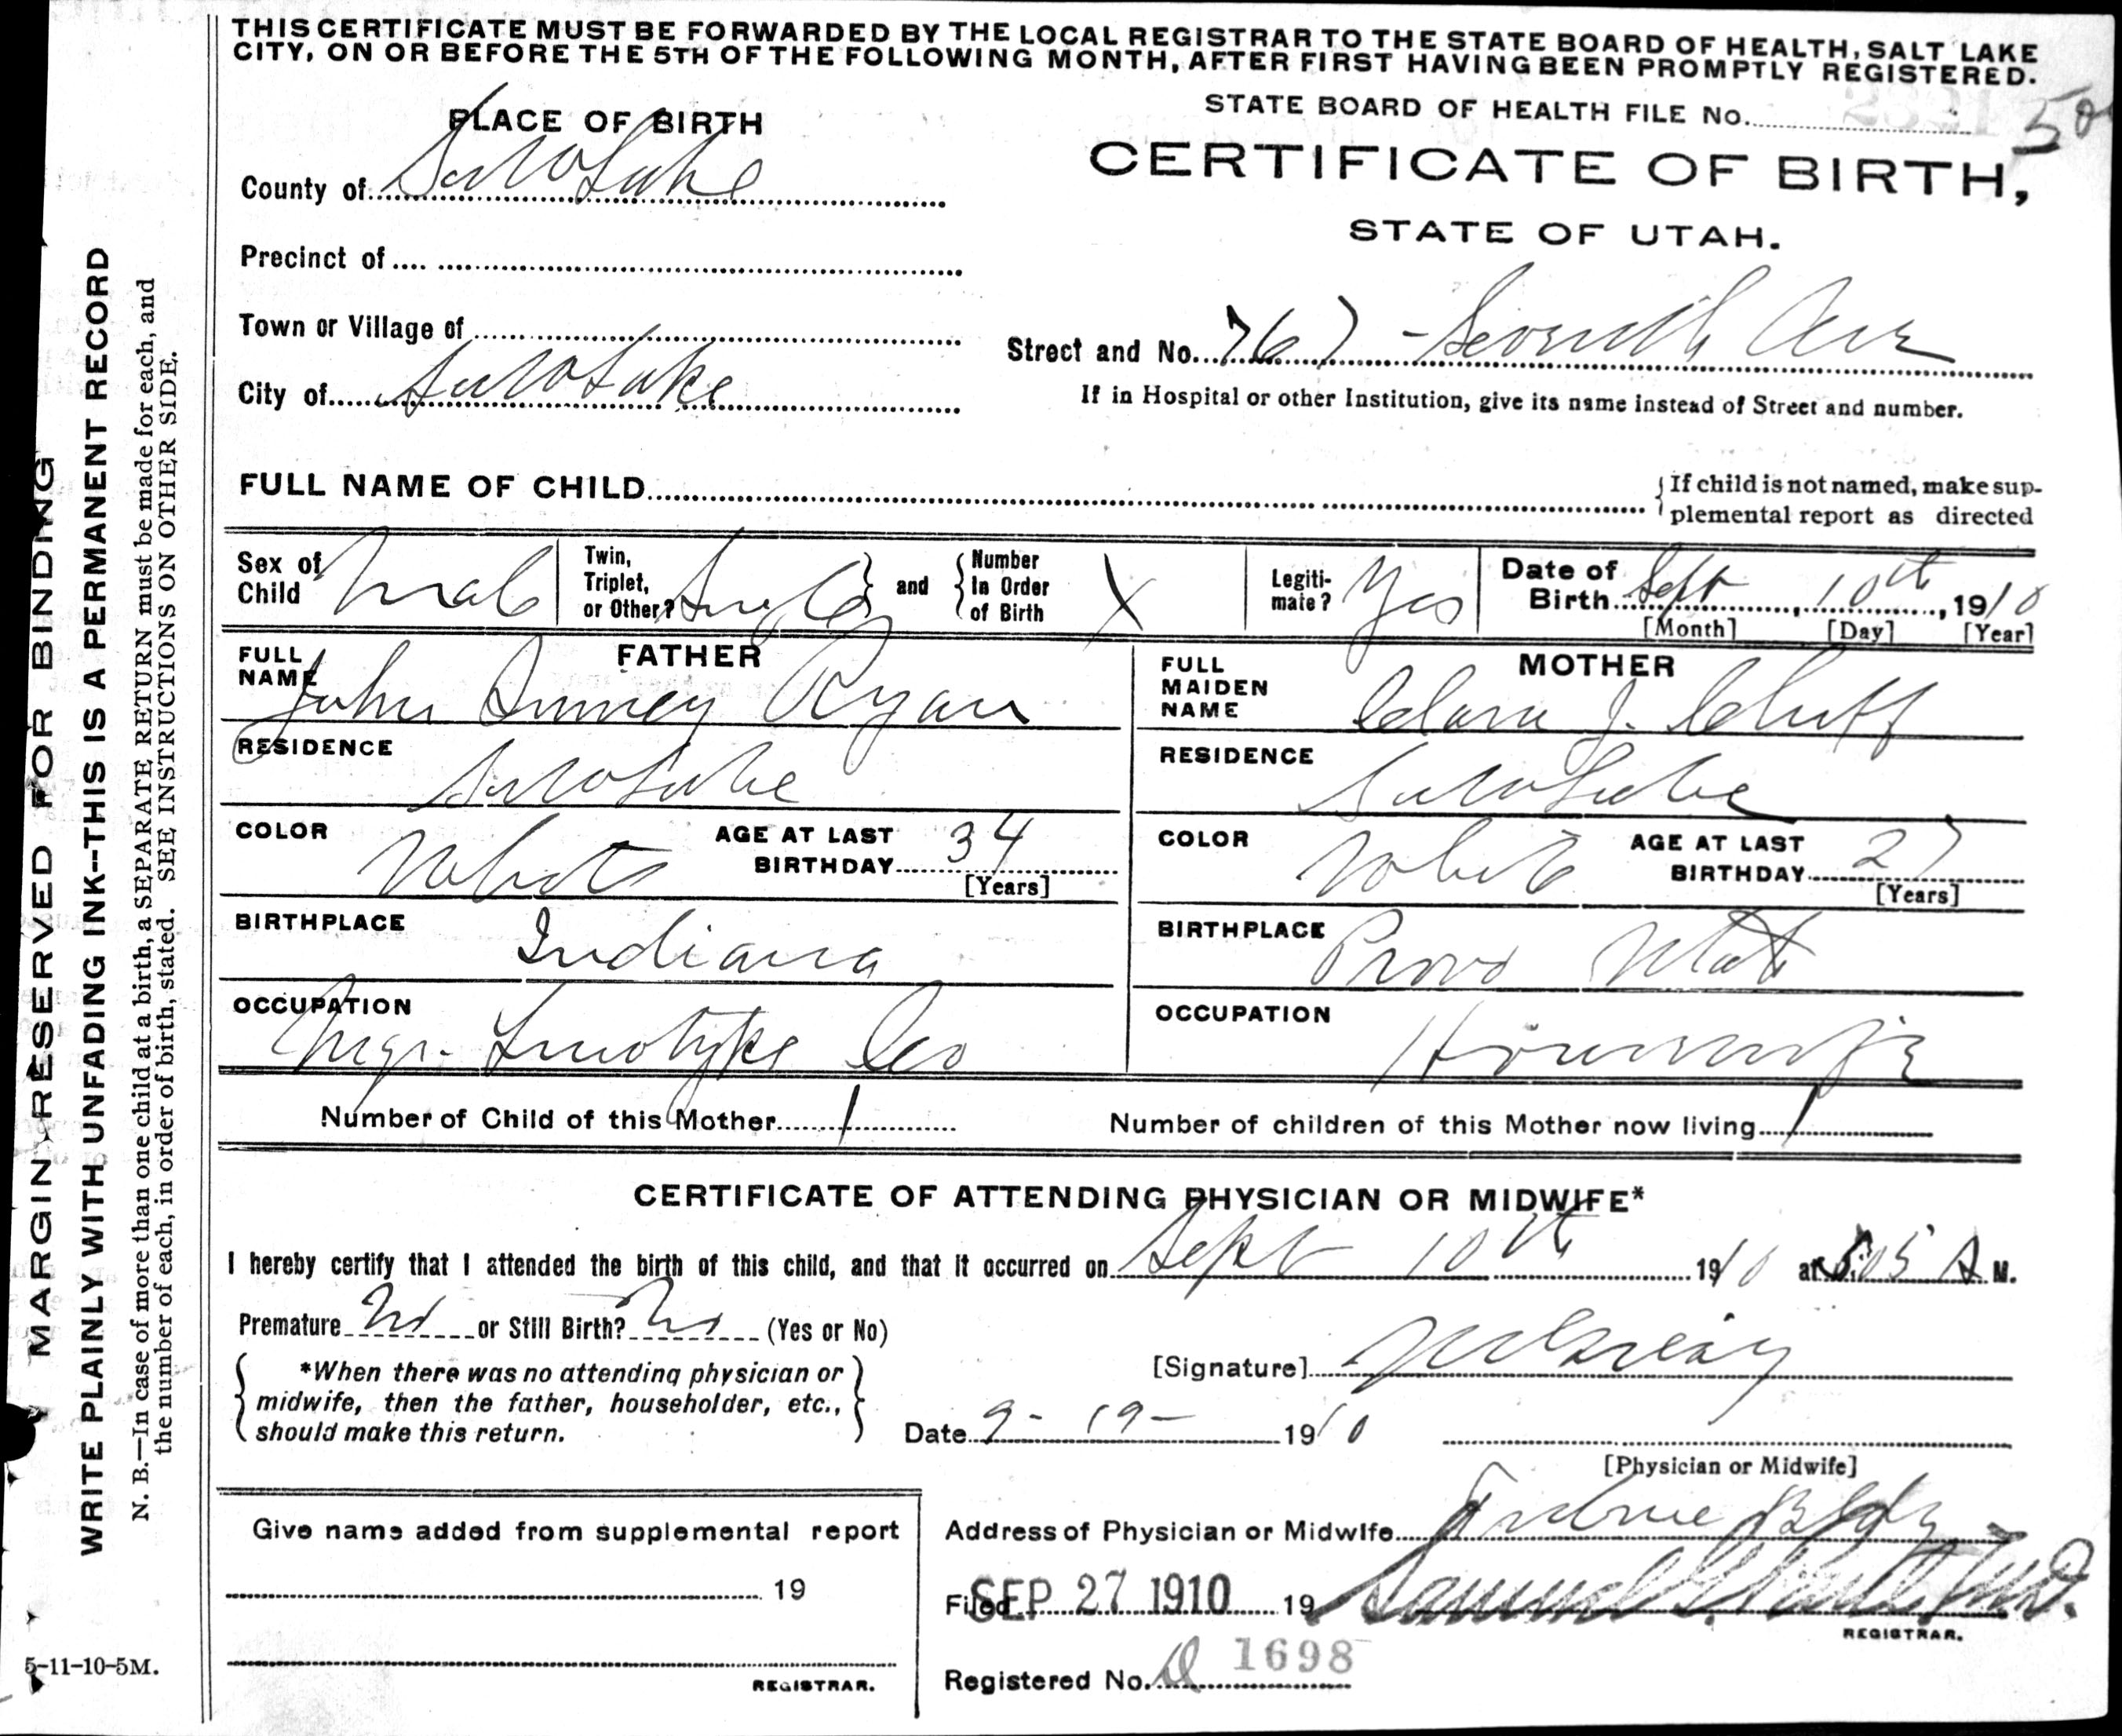 THIS CERTIFICATE MUST BE FORWARDED BY THE LOCAL REGISTRAR TO THE STATE BOARD OF HEALTH, SALT LAKE
CITY, ON OR BEFORE THE 5TH OF THE FOLLOWING MONTH, AFTER FIRST HAVING BEEN PROMPTLY REGISTERED.
STATE BOARD OF HEALTH FILE No.
50
PLACE OF BIRTH
CERTIFICATE OF BIRTH,
STATE OF UTAH.
County of Salt Lake
Precinct of
Town or Village of
Street and No. 767 - Seventh Ave
City of Salt Lake
If in Hospital or other Institution, give its name instead of Street and number.
FULL NAME OF CHILD
{If child is not named, make sup-
plemental report as directed
Sex of Child Male
Twin, Triplet, or Other? Single } and { Number In Order of Birth X
Legiti-mate? Yes
Date of Birth Sept, 10th, 1910
[Month] [Day] [Year]
FATHER
FULL NAME John Ryan
RESIDENCE Salt Lake
COLOR White AGE AT LAST BIRTHDAY 34 [Years]
BIRTHPLACE Indiana
OCCUPATION Mgr. Linotype Co
MOTHER
FULL MAIDEN NAME Clara J. Cluff
RESIDENCE Salt Lake
COLOR White AGE AT LAST BIRTHDAY 27 [Years]
BIRTHPLACE Provo Utah
OCCUPATION Housewife
Number of Child of this Mother 1 Number of children of this Mother now living 1
CERTIFICATE OF ATTENDING PHYSICIAN OR MIDWIFE*
I hereby certify that I attended the birth of this child, and that it occurred on Sept 10th 1910 at 5:05 A M.
Premature No or Still Birth? No (Yes or No)
*When there was no attending physician or
midwife, then the father, householder, etc.,
should make this return.
[Signature]
Date 9-19-1910
[Physician or Midwife]
Address of Physician or Midwife Tribune Bldg
Give name added from supplemental report
19
REGISTRAR.
Filed SEP 27 1910 19 Samuel G. Paul, M.D.
REGISTRAR.
Registered No. D 1698
MARGIN RESERVED FOR BINDING
WRITE PLAINLY WITH UNFADING INK--THIS IS A PERMANENT RECORD
N. B.—In case of more than one child at a birth, a SEPARATE RETURN must be made for each, and
the number of each, in order of birth, stated. SEE INSTRUCTIONS ON OTHER SIDE.
5-11-10-5M.